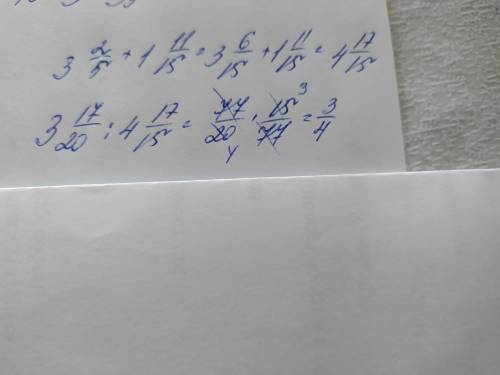 3 2/5 + 1 11/15 = 3 6/15 + 1 11/15 = 4 17/15
3 17/20 : 4 17/15 = 77/20 4 · 15/77 3 = 3/4